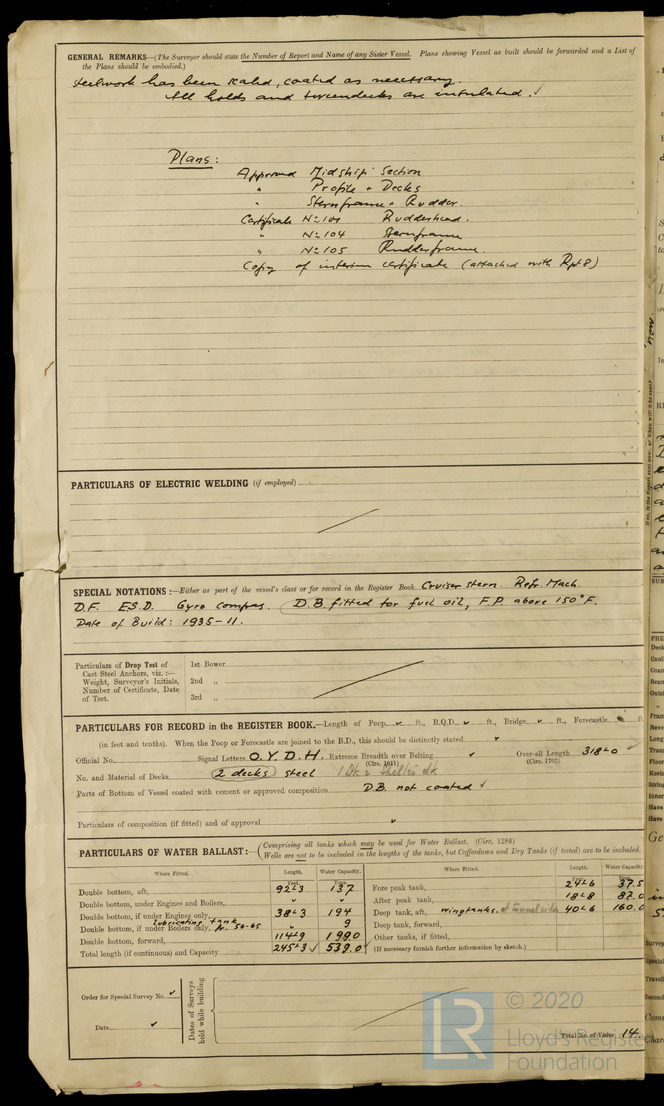 GENERAL REMARKS—(The Surveyor should state the Number of Report and Name of any Sister Vessel. Plans showing Vessel as built should be forwarded and a List of
the Plans should be embodied.)
steelwork has been scaled, coated as necessary.
All holds and tweendecks are insulated. ✓
Plans:
Approved Midship Section
" Profile + Decks
" Sternframe + Rudder.
Certificate No 101 Rudderhead.
" No 104 Sternframe
" No 105 Rudderframe.
Copy of interim certificate (attached with Rpt 8)
PARTICULARS OF ELECTRIC WELDING (if employed)
SPECIAL NOTATIONS:—Either as part of the vessel's class or for record in the Register Book Cruiser stern. Refr. Mach.
D.F. E.S.D. Gyro compas. D.B. fitted for fuel oil, F.P. above 150°F.
Date of Build: 1935-11.
Particulars of Drop Test of
Cast Steel Anchors, viz.:—
Weight, Surveyor's Initials,
Number of Certificate, Date
of Test.
1st Bower
2nd "
3rd "
PARTICULARS FOR RECORD in the REGISTER BOOK.—Length of Poop ✓ ft., R.Q.D. ✓ ft., Bridge ✓ ft., Forecastle ft
(in feet and tenths). When the Poop or Forecastle are joined to the B.D., this should be distinctly stated ✓
Official No. Signal Letters O.Y.D.H. Extreme Breadth over Belting ✓ Over-all Length 318.0 ✓
(Circ. 1611) (Circ. 1703)
No. and Material of Decks 2 decks steel 1 Dk & Shelter dk
Parts of Bottom of Vessel coated with cement or approved composition D.B. not coated ✓
Particulars of composition (if fitted) and of approval ✓
PARTICULARS OF WATER BALLAST:—(Comprising all tanks which may be used for Water Ballast. (Circ. 1284)
Wells are not to be included in the lengths of the tanks, but Cofferdams and Dry Tanks (if tested) are to be included.
Where Fitted. Length. Water Capacity. Where Fitted. Length. Water Capacity
Double bottom, aft, 92.3 137 Fore peak tank, 24.6 37.5
Double bottom, under Engines and Boilers, " " After peak tank, 18.8
Double bottom, if under Engines only, 38.3 194 Deep tank, aft, wingtanks. at tunnel sides 40.6 160.0
lubricating tank
Double bottom, if under Boilers only, fr. 56-65 9 Deep tank, forward,
Double bottom, forward, 114.9 199.0 Other tanks, if fitted,
Total length (if continuous) and Capacity 245.3 ✓ 539.0 ✓ (If necessary furnish further information by sketch.)
Order for Special Survey No. ✓
Date ✓
Dates of Surveys
held while building
Total No. of Visits 14
© 2020
Lloyd's Register
Foundation
LR